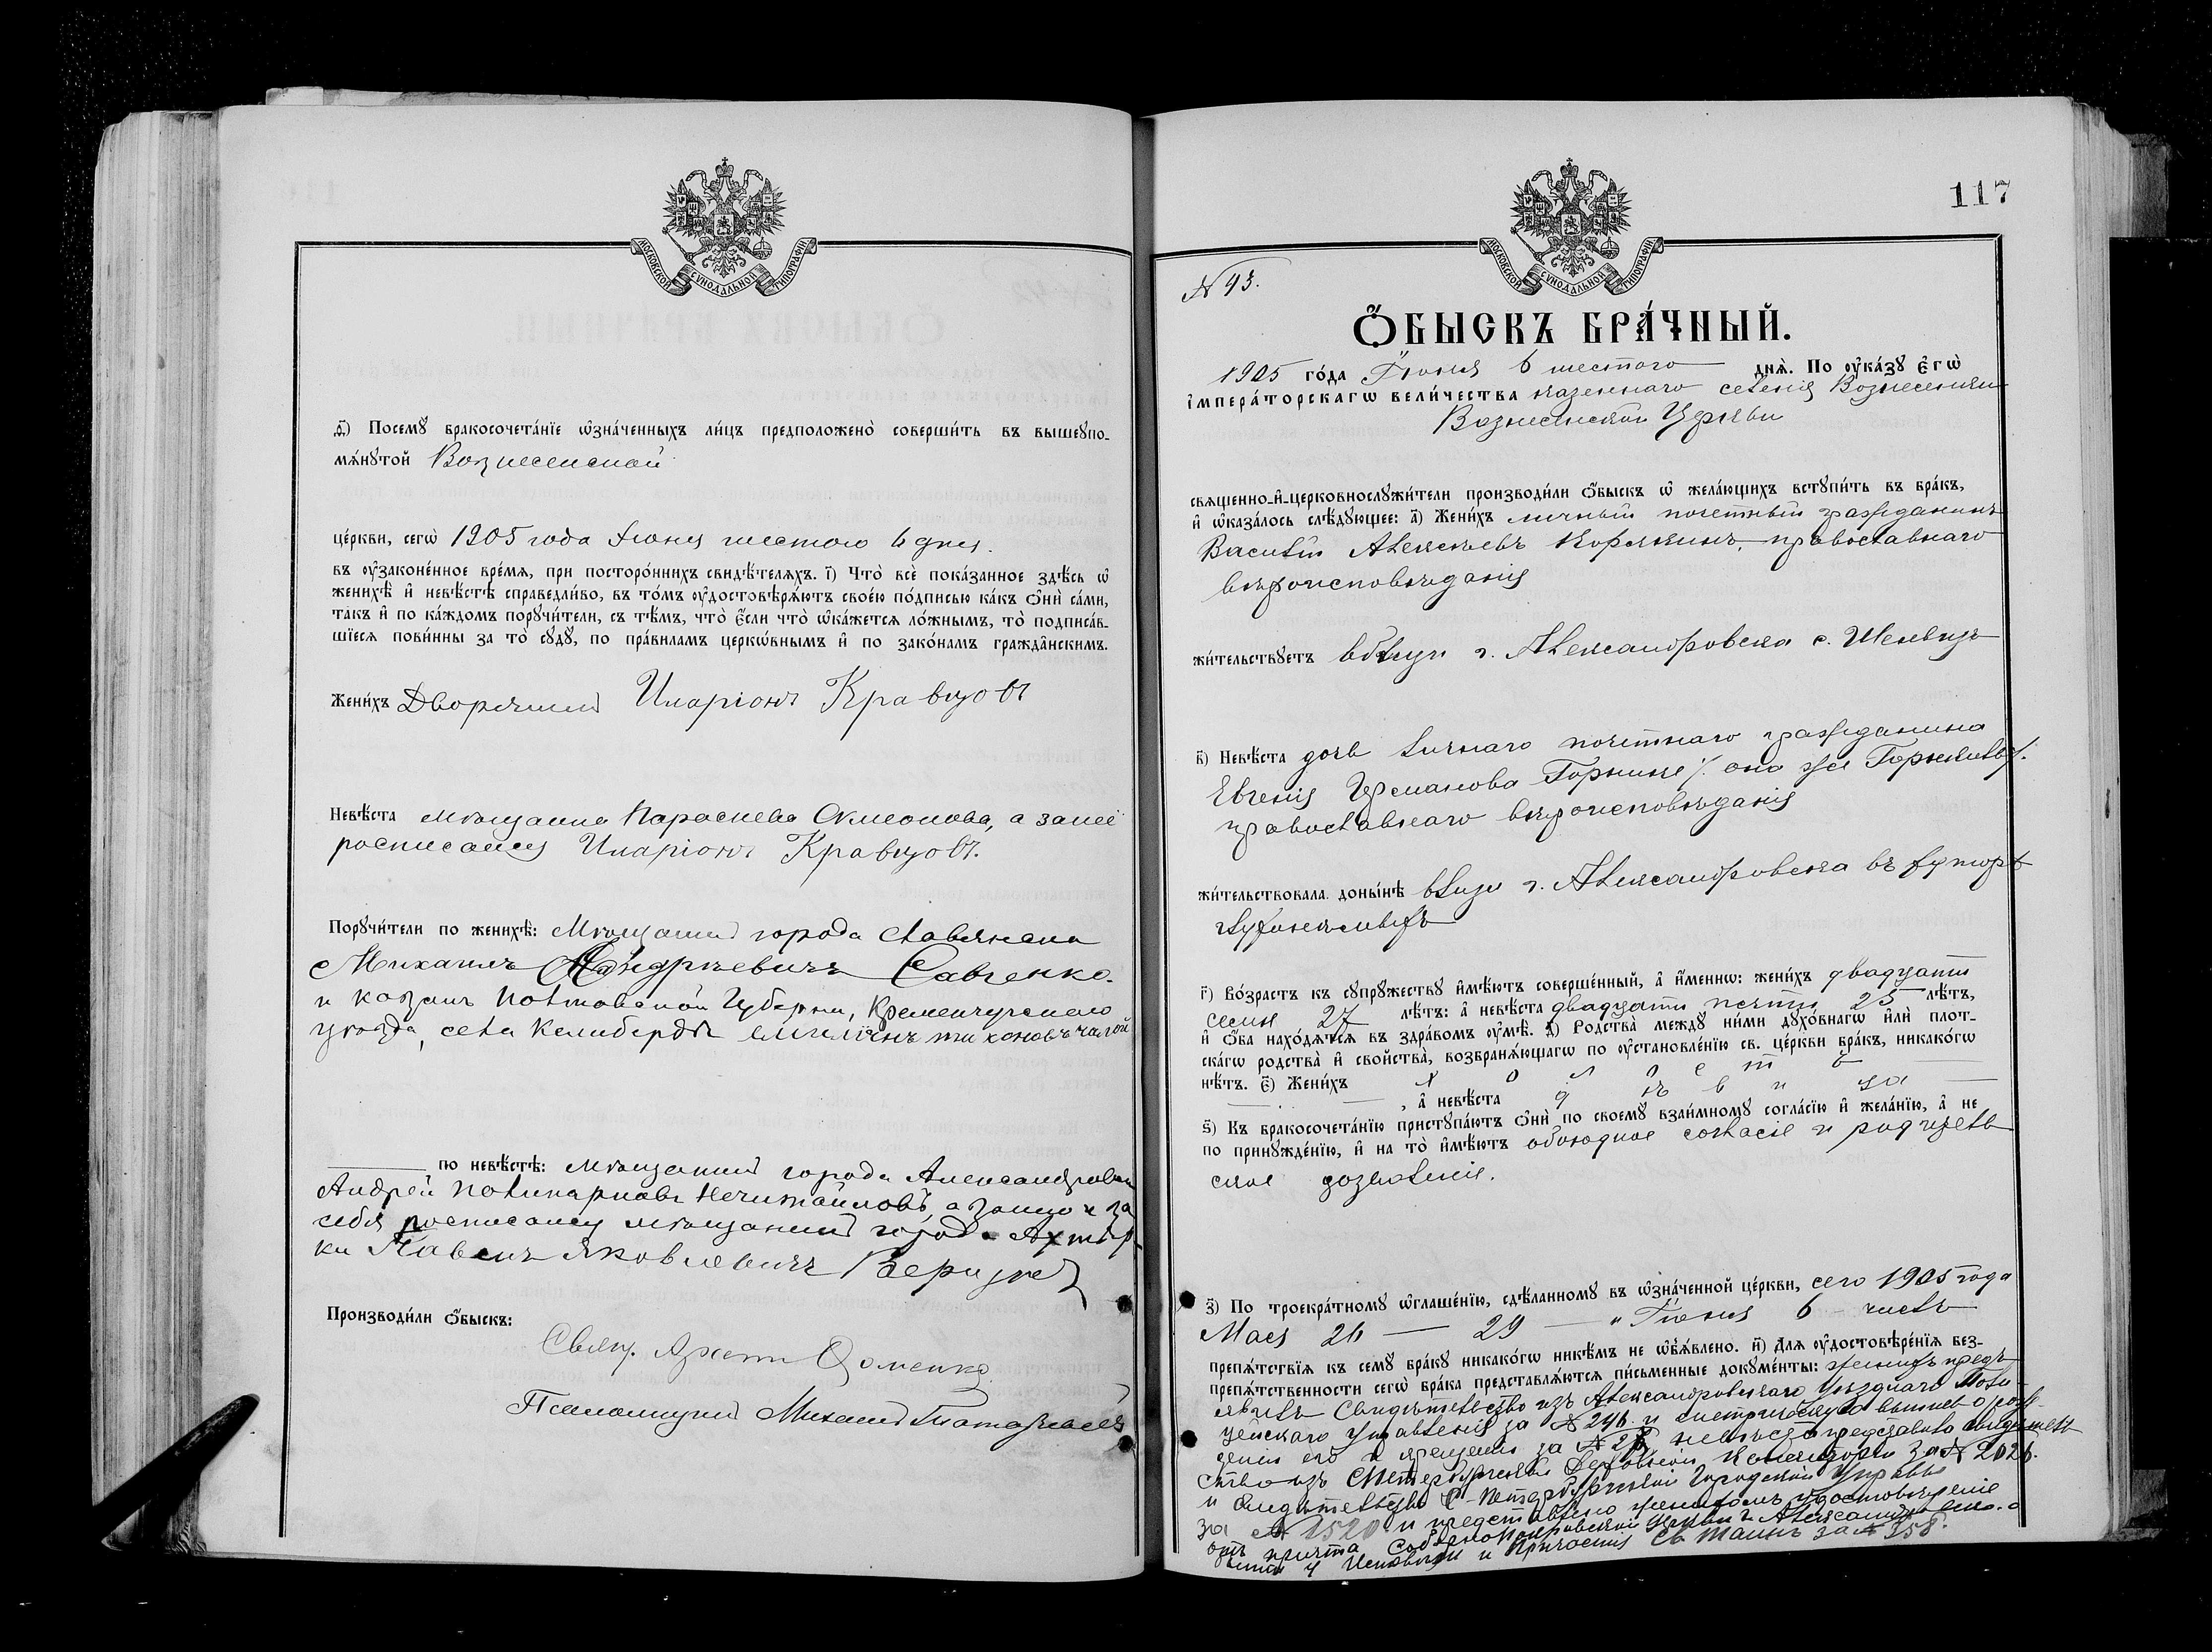 МОСКОВСКОЙ СѴНОДАЛЬНОЙ ТИПОГРАФІИ
ѳ҃) Посемꙋ̀ бракосочета́нїе ѡ҆зна́ченныхъ ли́цъ предположено̀ соверши́ть въ вышеꙋпо-
мѧ́нꙋтой Вознесенской
це́ркви, сегѡ̀ 1905 года Іюня шестого 6 дня.
въ ᲂу҆зако́ненное вре́мѧ, при посторо́ннихъ свидѣ́телѧхъ. і҃) Что̀ всѐ пока́занное здѣ́сь ѡ҆
женихѣ̀ и҆ невѣ́стѣ справедли́во, въ то́мъ ᲂу҆достовѣрѧ́ютъ свое́ю по́дписью ка́къ ѻ҆нѝ са́ми,
та́къ и҆ по ка́ждомъ порꙋчи́тели, съ тѣ́мъ, что̀ є҆́сли что̀ ѡ҆ка́жетсѧ ло́жнымъ, то̀ подписа́в-
шїесѧ пови́нны за то̀ сꙋдꙋ̀, по пра́виламъ церкѡ́внымъ и҆ по зако́намъ гражда́нскимъ.
Жени́хъ Дворянинъ Иларіонъ Кравцовъ
Невѣ́ста мѣщанка Параскева Симеонова, а за нее
росписался Иларіонъ Кравцовъ.
Порꙋчи́тели по женихѣ̀: Мѣщанинъ города Славянска
Михаилъ Андрѣевичъ Савченко.
и козакъ Полтавской Губерніи, Кременчугскаго
уѣзда, села Келиберды
по невѣ́стѣ: мѣщанинъ города Александровска
Андрей Поликарповъ Нечитайловъ, а за него и за
себя росписался мѣщанинъ города Ахтыр-
ки Павелъ Яковлевичъ
Производи́ли ѻ҆́быскъ:
Свящ.
Псаломщикъ Михаилъ
117
МОСКОВСКОЙ СѴНОДАЛЬНОЙ ТИПОГРАФІИ
N 93.
Ѻ҆́БЫСКЪ БРА́ЧНЫЙ.
1905 го́да Іюня 6 шестого днѧ̀. По ᲂу҆ка́зꙋ є҆гѡ̀
і҆мпера́торскагѡ вели́чества казеннаго селенія Вознесенки
Вознесенской Церкви
свѧщенно-и҆-церковнослꙋжи́тели производи́ли ѻ҆́быскъ ѡ҆ жела́ющихъ встꙋпи́ть въ бра́къ,
и҆ ѡ҆каза́лось слѣ́дꙋющее: а҃) Жени́хъ личный почетный гражданинъ
Василій Алексѣевъ Корякинъ, православнаго
вѣроисповѣданія
жи́тельствꙋетъ вблизи г. Александровска с.
в҃) Невѣ́ста дочь личнаго почетнаго гражданина
Евгенія Германова она же
православнаго вѣроисповѣданія
жи́тельствовала доны́нѣ близи г. Александровска въ хуторѣ
г҃) Во́зрастъ къ сꙋпрꙋ́жествꙋ и҆мѣ́ютъ соверше́нный, а҆ и҆́меннѡ: жени́хъ двадцати
семи 27 лѣ́тъ: а҆ невѣ́ста двадцати пяти 25 лѣ́тъ,
и҆ ѻ҆́ба нахо́дѧтсѧ въ здра́вомъ ᲂу҆мѣ̀. д҃) Родства̀ междꙋ̀ ни́ми дꙋхо́внагѡ и҆лѝ плот-
ска́гѡ родства̀ и҆ свойства̀, возбранѧ́ющагѡ по ᲂу҆становле́нїю св. це́ркви бра́къ, никако́гѡ
нѣ́тъ. є҃) Жени́хъ холостъ
, а҆ невѣ́ста дѣвица
ѕ҃) Къ бракосочета́нїю пристꙋпа́ютъ ѻ҆нѝ по своемꙋ̀ взаи́мномꙋ согла́сїю и҆ жела́нїю, а҆ не
по принꙋжде́нїю, и҆ на то̀ и҆мѣ́ютъ обоюдное согласіе и родитель-
ское дозволеніе.
з҃) По троекра́тномꙋ ѡ҆глаше́нїю, сдѣ́ланномꙋ въ ѡ҆зна́ченной це́ркви, сего 1905 года
Мая 26 — 29 — и Іюня 6 — числъ
препѧ́тствїѧ къ семꙋ̀ бра́кꙋ никако́гѡ никѣ́мъ не ѡ҆б̾ѧ́влено. и҃) Длѧ ᲂу҆достовѣре́нїѧ без-
препѧ́тственности сегѡ̀ бра́ка представлѧ́ютсѧ пи́сьменные докꙋме́нты: женихъ предъ-
явилъ Свидѣтельство изъ Александровскаго Уѣзднаго Поли-
цейскаго Управленія за N 296 и метрическую выпись о рож-
деніи его и крещеніи за N невѣста представила свидѣтель-
ство изъ С.Петербургской Духовной Консисторіи за N 2026.
и Свидѣтельство С.-Петербургской Городской Управы
за N 1520 и представлено женихомъ удостовѣреніе
отъ причта Церкви г. Александровска о
Исповѣди и Причастіи Св Таинъ за N 358.